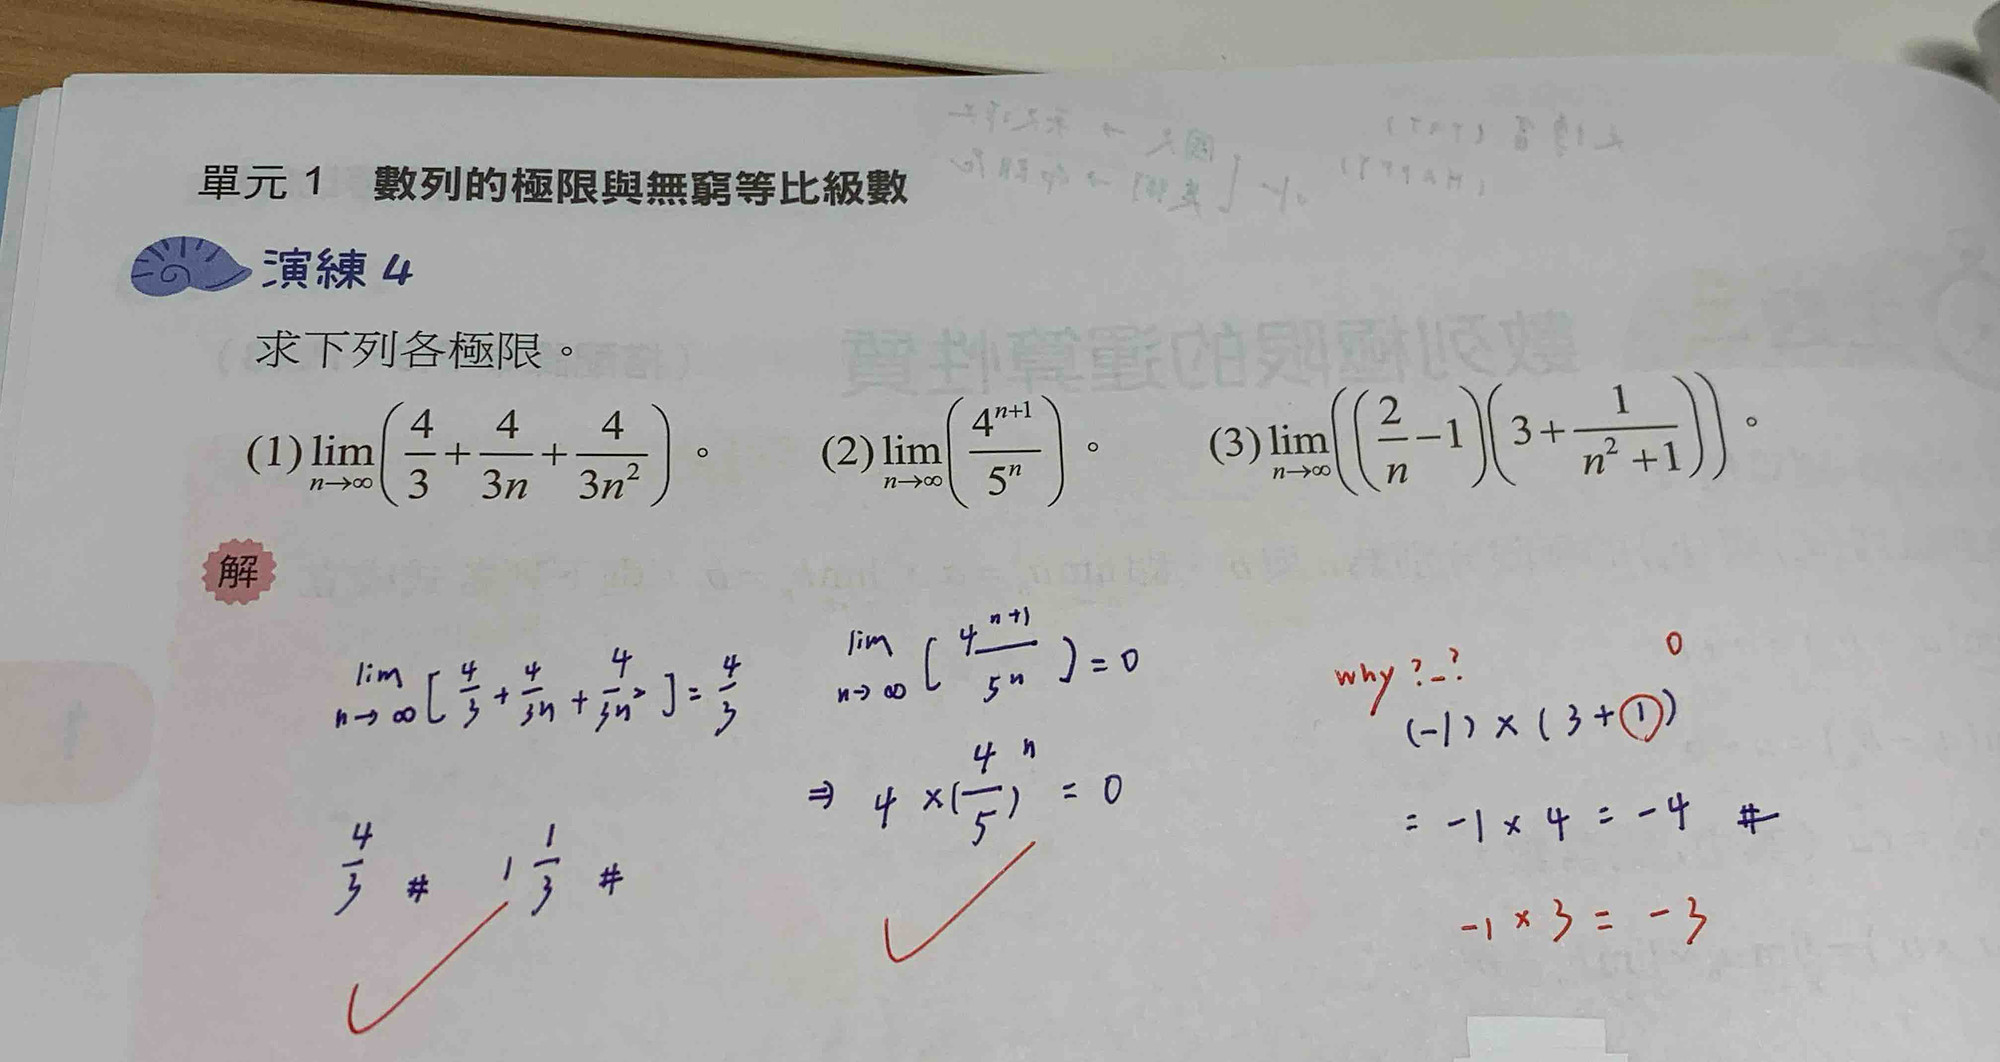 單元 1 數列的極限與無窮等比級數
演練 4
求下列各極限。
(1) lim n→∞ (4/3 + 4/3n + 4/3n²)。 (2) lim n→∞ (4ⁿ⁺¹/5ⁿ)。 (3) lim n→∞ ((2/n − 1)(3 + 1/(n² + 1)))。
解
lim n→∞ [4/3 + 4/3n + 4/3n²] = 4/3
4/3 # 1 1/3 #
lim n→∞ [4ⁿ⁺¹/5ⁿ] = 0
⇒ 4 × (4/5)ⁿ = 0
why ?_? 0
(-1) × (3 + 1)
= -1 × 4 = -4 #
-1 × 3 = -3